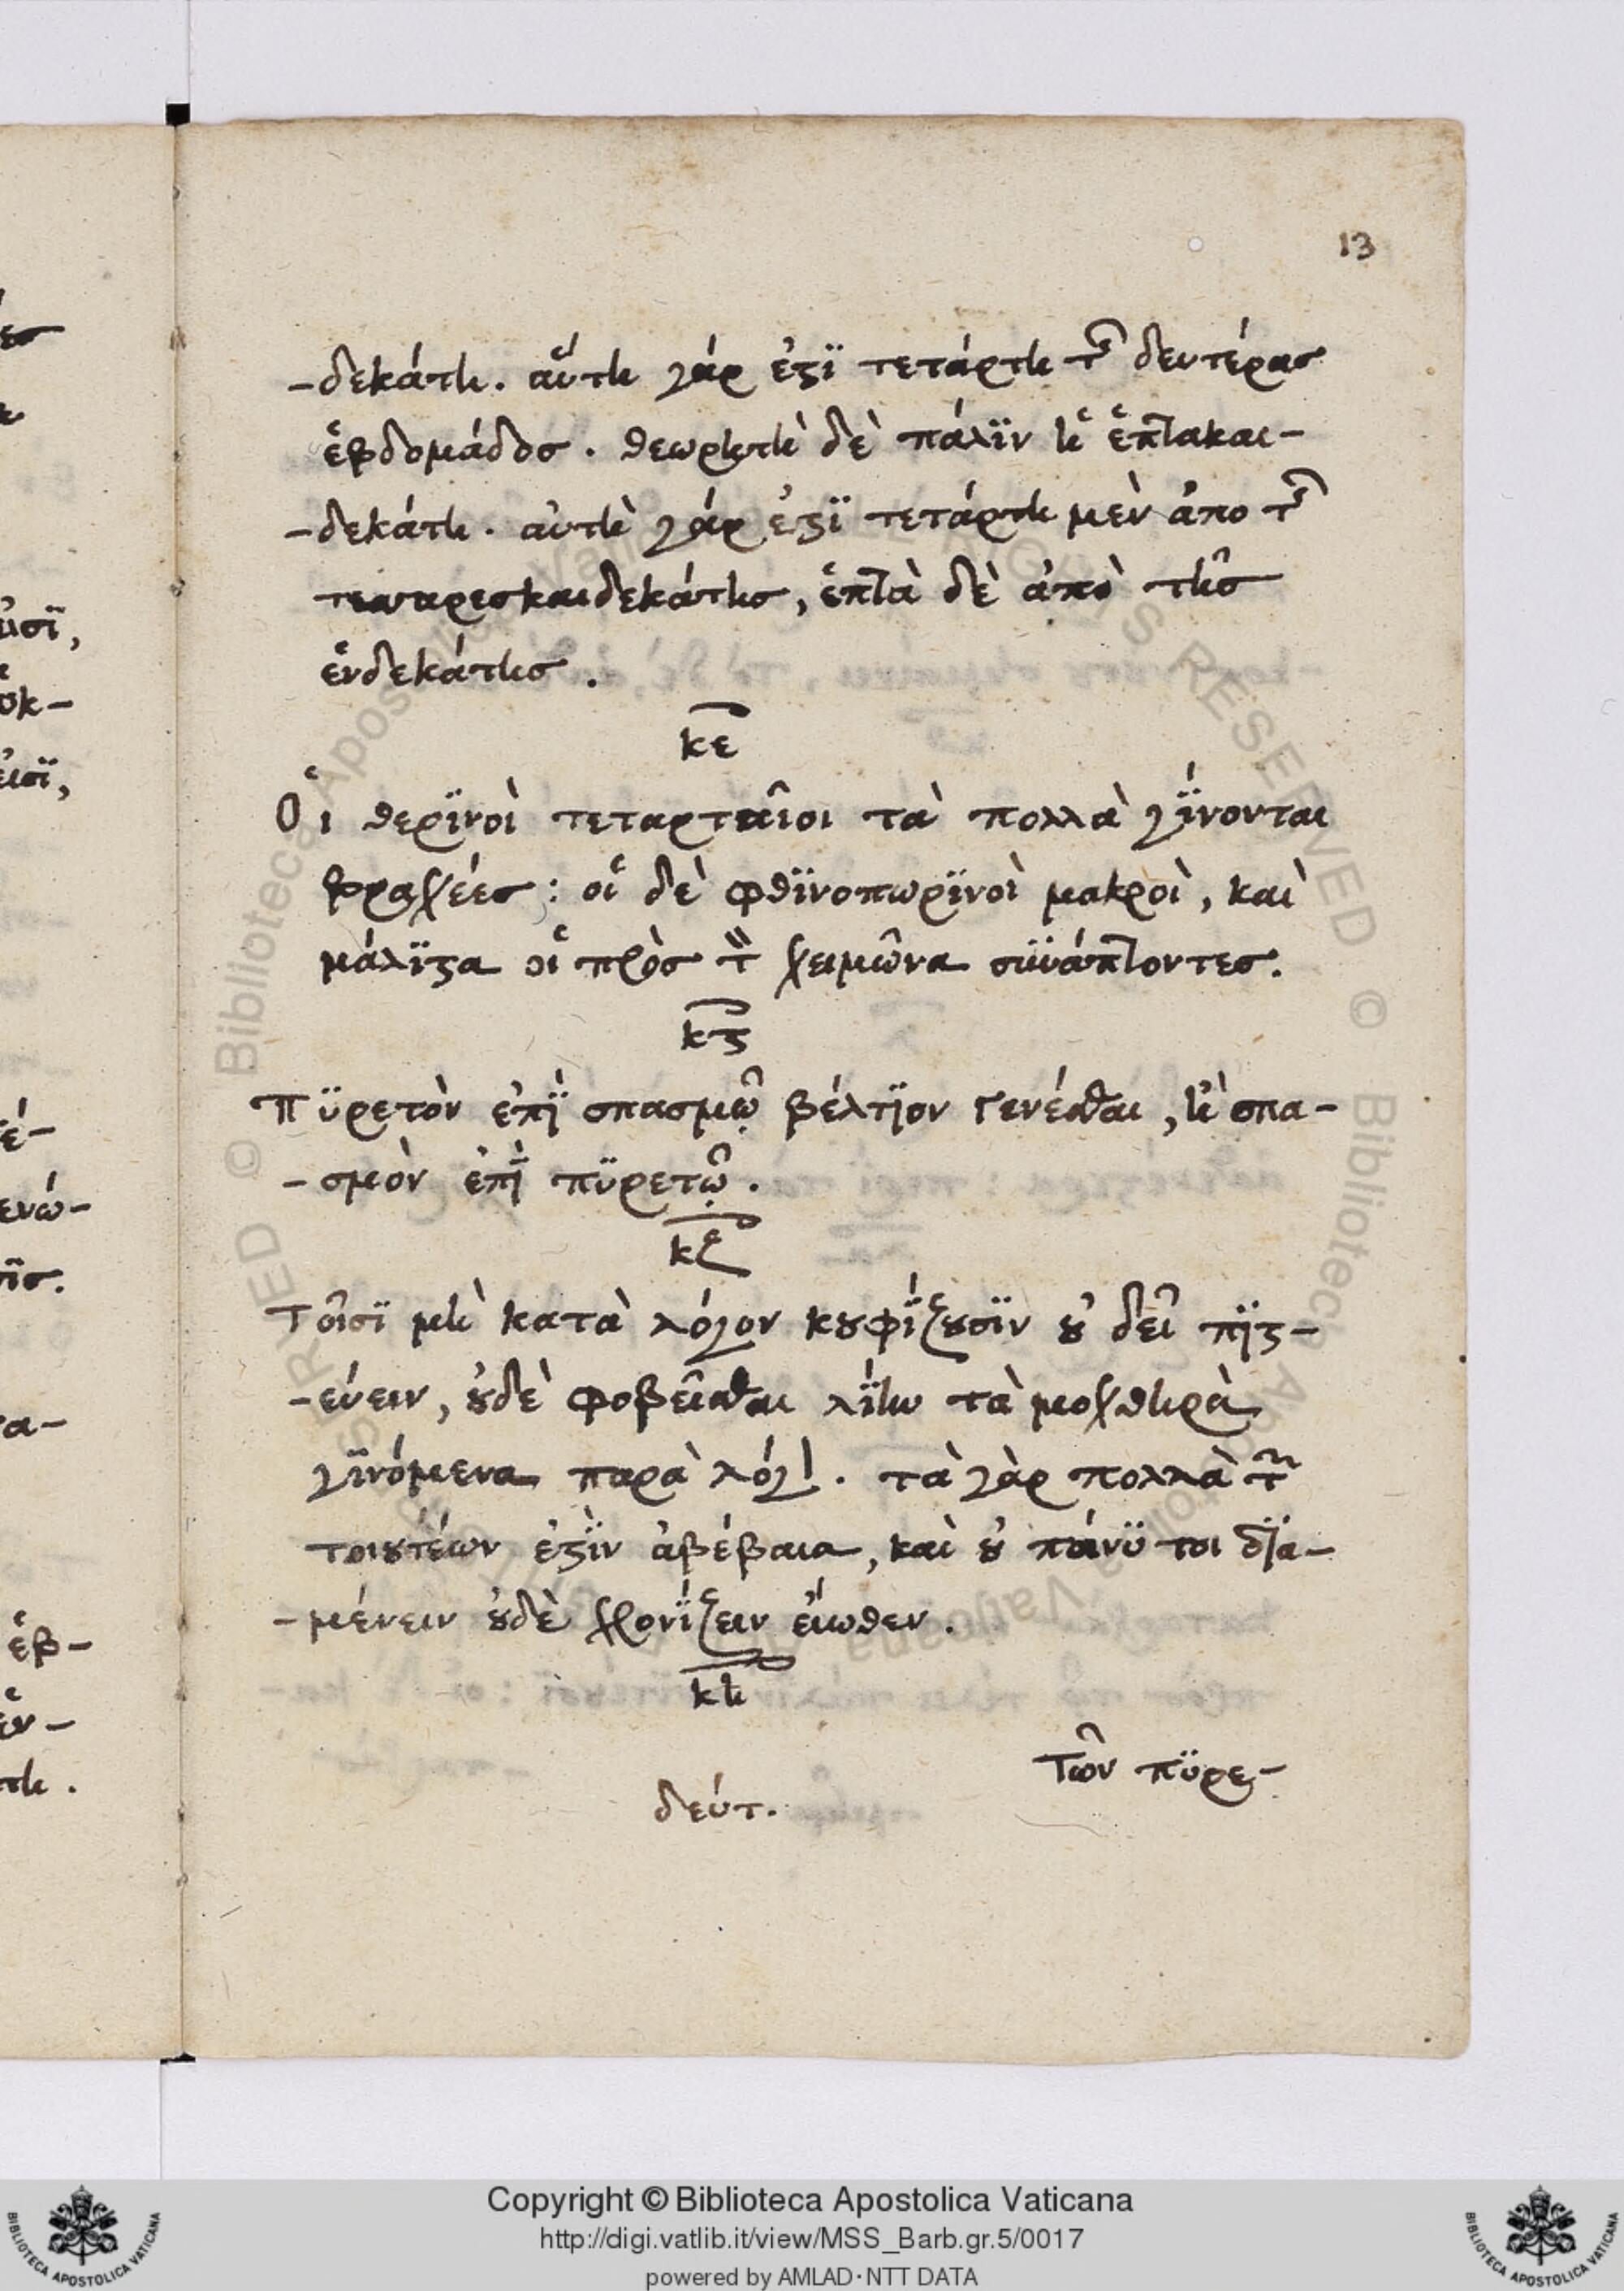 13
-δεκάτη. αὕτη γάρ ἐστϊ τετάρτη τῆς δευτέρας
ἑβδομάδος. θεωρητὴ δὲ πάλϊν ἡ ἑπτακαι-
-δεκάτη. αὐτὴ γάρ ἐστϊ τετάρτη μὲν ἀπο τῆς
τεσσαρεσκαιδεκάτης, ἑπτὰ δὲ ἀπὸ τῆς
ἑνδεκάτης.
κε
Οἱ θερϊνοὶ τεταρταῖοι τὰ πολλὰ γΐνονται
βραχέες: οἱ δὲ φθϊνοπωρϊνοὶ μακροὶ, καὶ
μάλϊστα οἱ πρὸς τὸν χειμῶνα συϋάπτοντες.
κϛ
Πϋρετὸν ἐπῒ σπασμῷ βέλτϊον γενέσθαι, ἢ σπα-
-σμὸν ἐπῒ πϋρετῷ.
κζ
Τοῖσϊ μὴ κατὰ λόγον κουφΐζουσϊν οὐ δεῖ πϊστ-
-εύειν, οὐδὲ φοβεῖσθαι λΐην τὰ μοχθηρὰ
γϊνόμενα παρὰ λόγον. τὰ γὰρ πολλὰ τῶν
τοιουτέων ἐστῒν ἀβέβαια, καὶ οὐ πάνϋ τοι δϊα-
-μένειν οὐδὲ χρονΐζειν εἴωθεν.
κη
Τῶν πϋρε-
δεύτ.
έ-
ενώ-
α-
ἑβ-
ἑν-
τη.
Copyright © Biblioteca Apostolica Vaticana
http://digi.vatlib.it/view/MSS_Barb.gr.5/0017
powered by AMLAD·NTT DATA
BIBLIOTECA APOSTOLICA VATICANA
BIBLIOTECA APOSTOLICA VATICANA